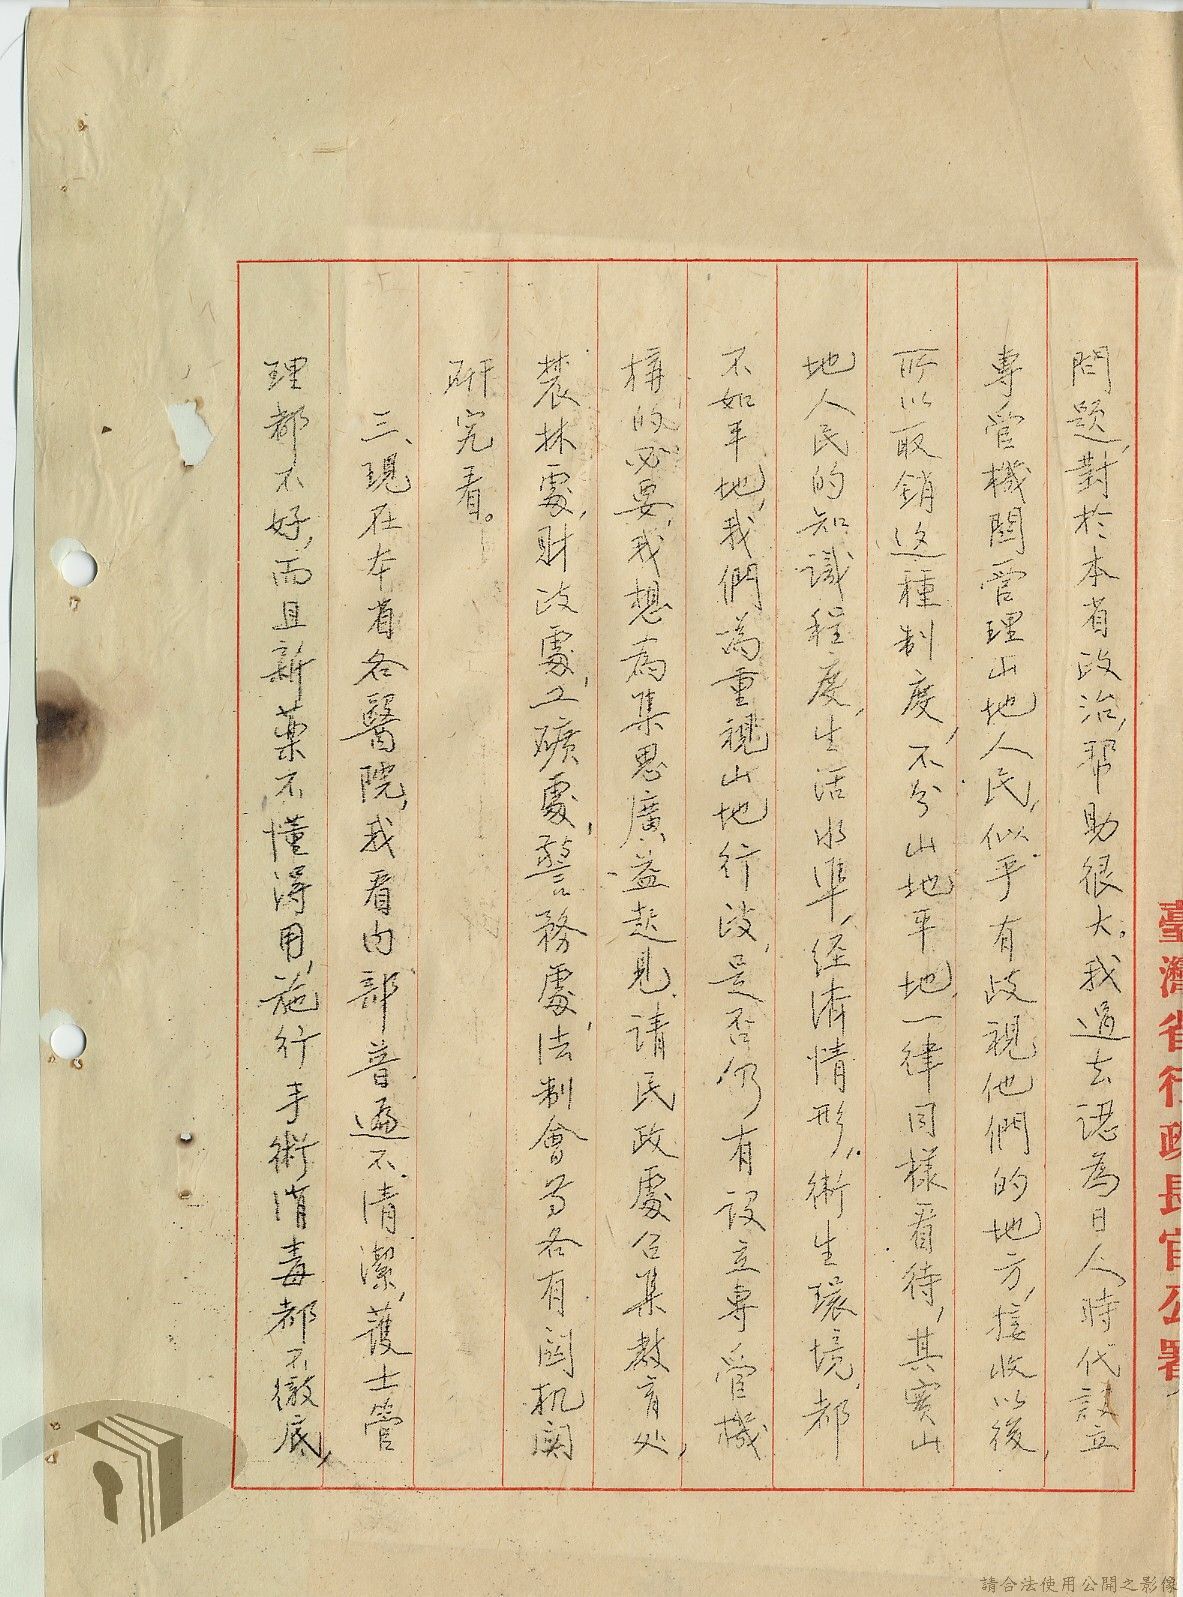 臺灣省行政長官公署
問題,對於本省政治,帮助很大。我過去認為日人時代設立
專管機關管理山地人民,似乎有歧視他們的地方,接收以後,
所以取銷这種制度,不分山地平地,一律同樣看待,其实山
地人民的知識程度,生活水準,经济情形,衛生環境,都
不如平地,我們為重視山地行政,是否仍有設立專管機
構的必要,我想為集思廣益起見,请民政處召集教育处,
農林處,財政處,工礦處,警務處,法制會等各有関机関
研究看。
三、現在本省各醫院,我看内部普遍不清潔,護士管
理都不好,而且新藥不懂得用,施行手術消毒都不徹底,
請合法使用公開之影像